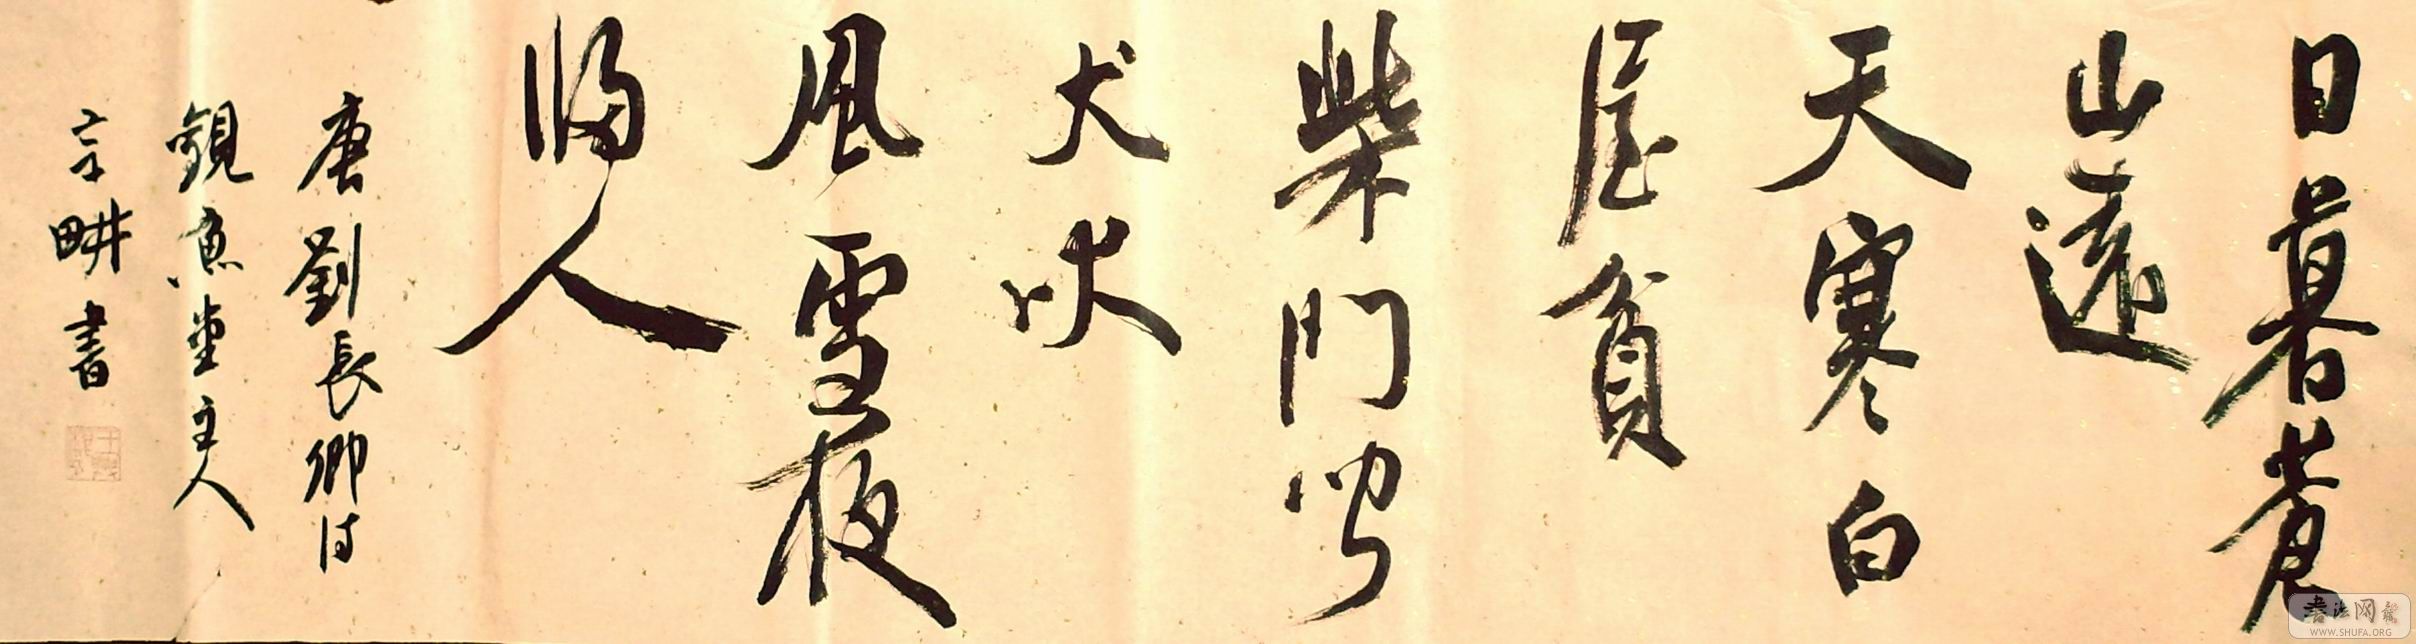 日暮蒼
山遠
天寒白
屋貧
柴門聞
犬吠
風雪夜
歸人
唐劉長卿詩
觀魚堂主人
言畊書
書法网
WWW.SHUFA.ORG